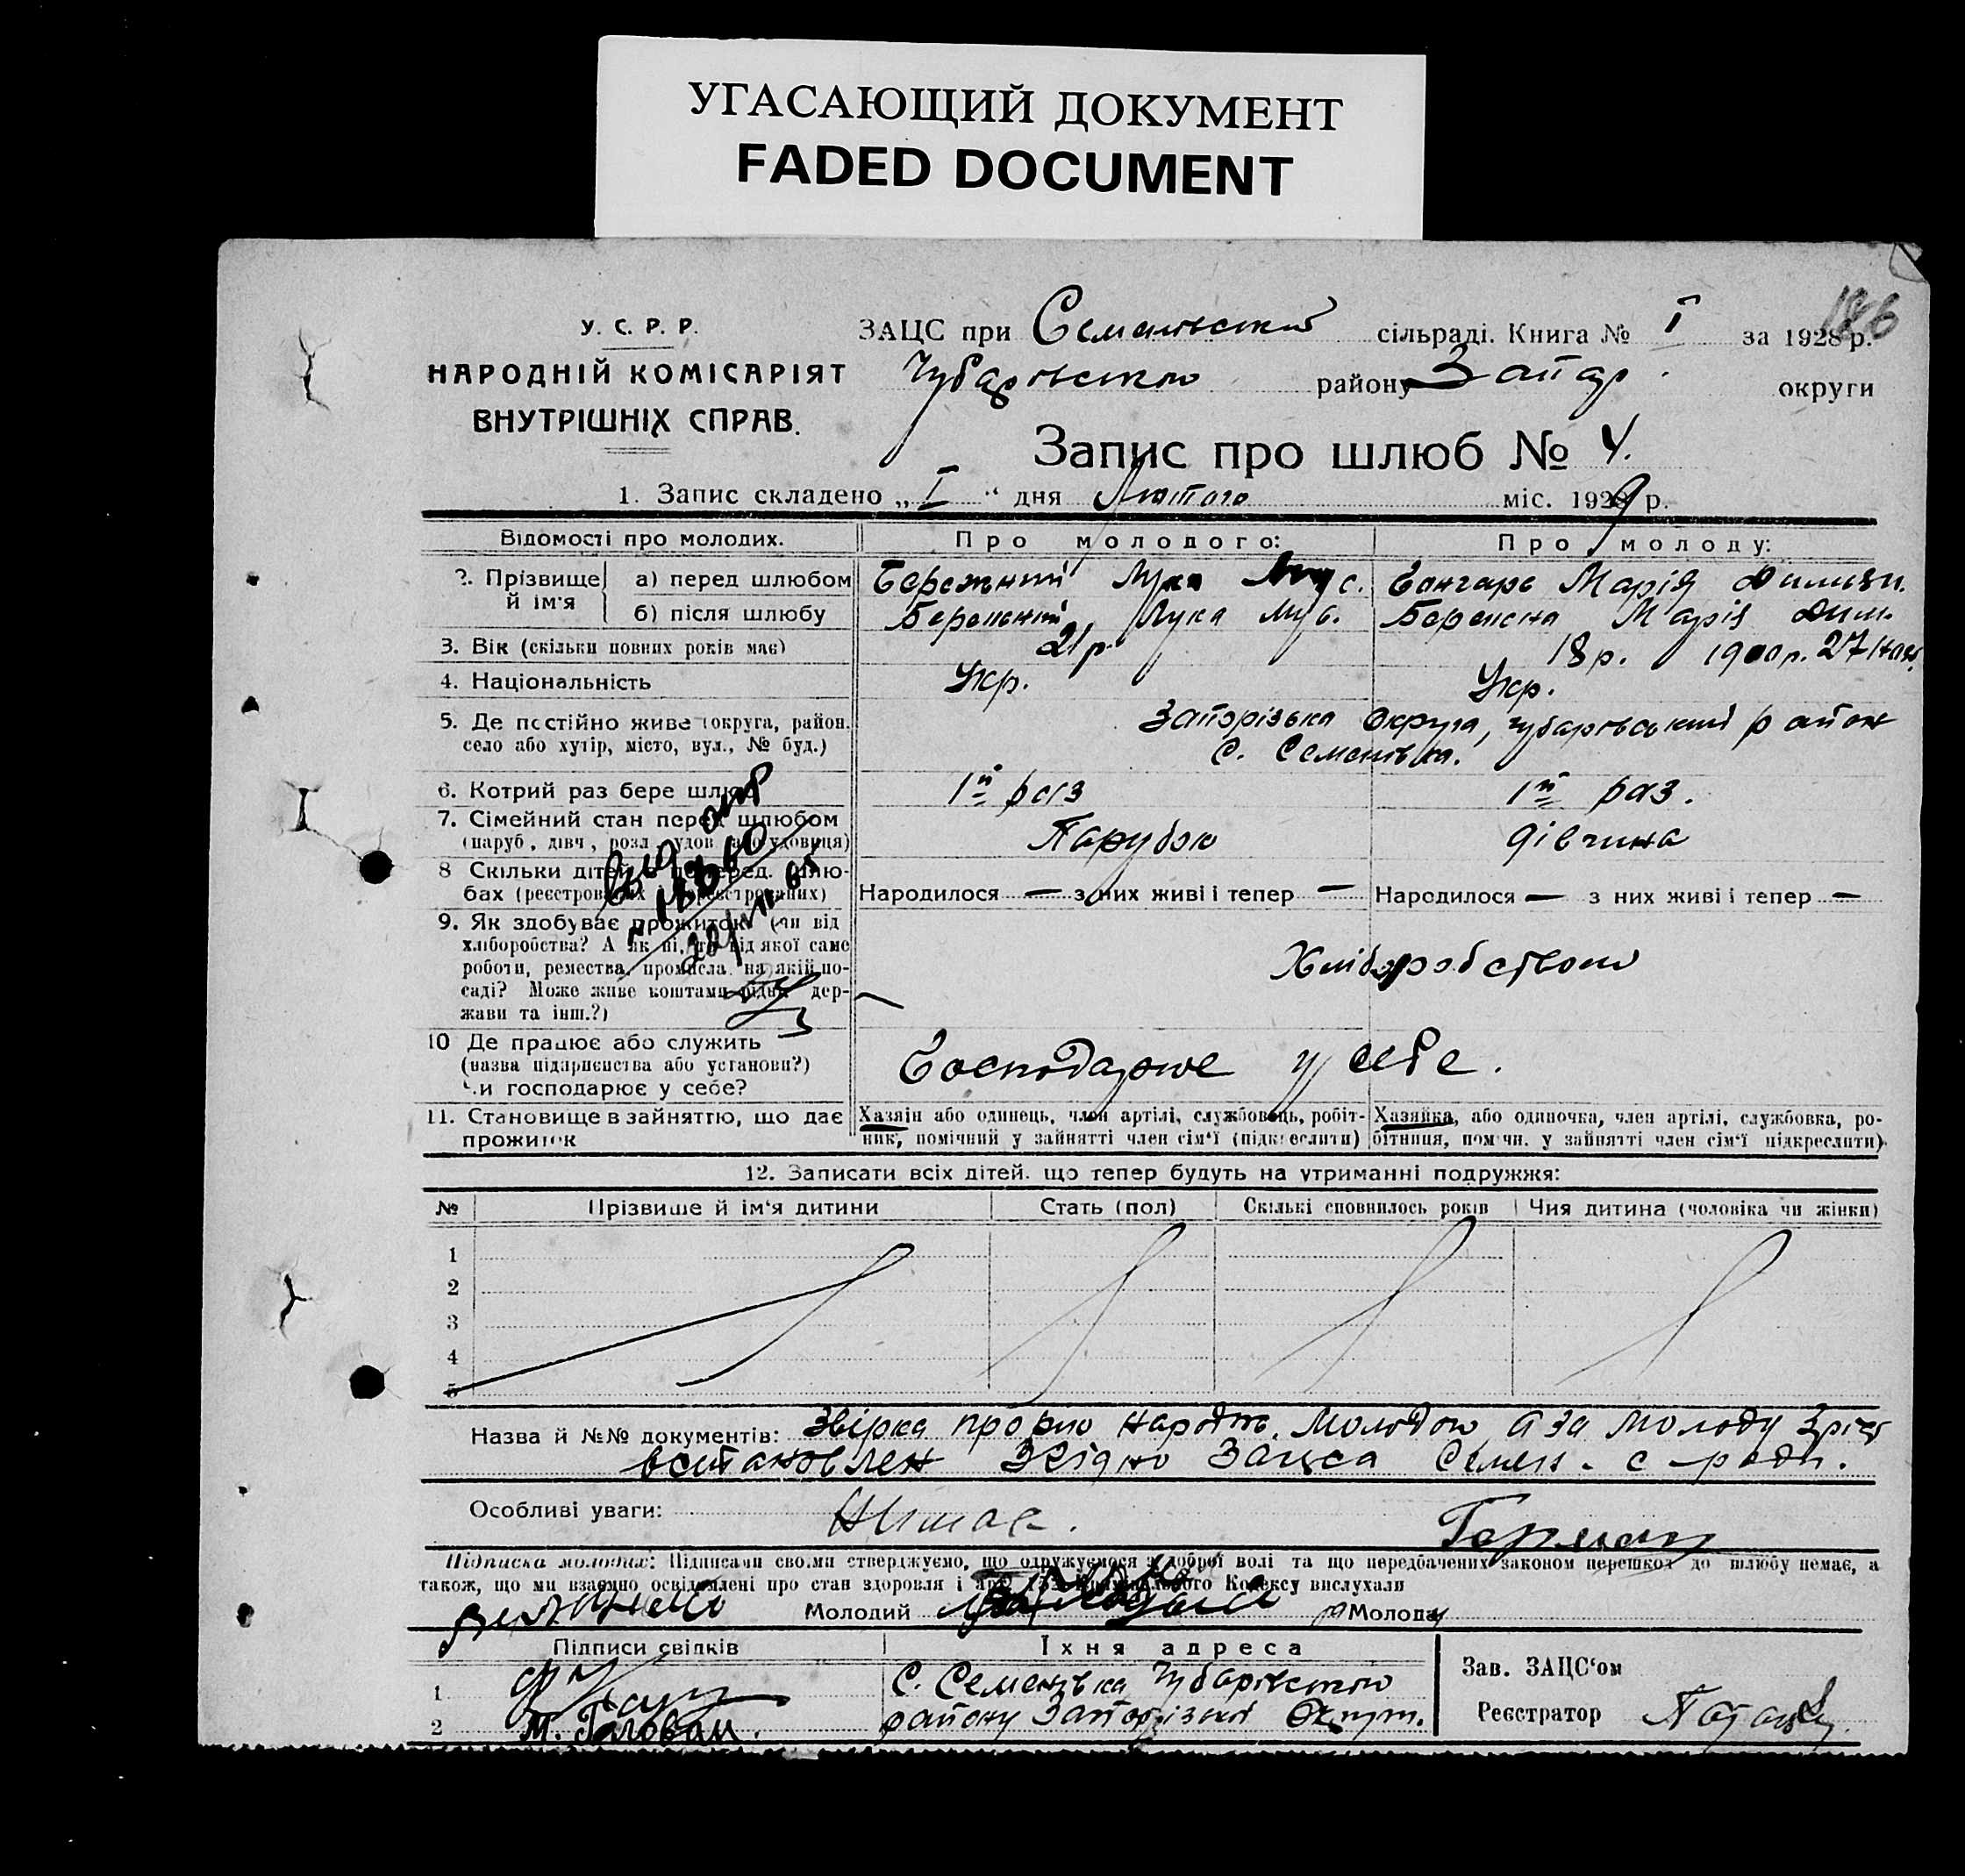 УГАСАЮЩИЙ ДОКУМЕНТ
FADED DOCUMENT
186
У. С. Р. Р.
НАРОДНІЙ КОМІСАРІЯТ
ВНУТРІШНІХ СПРАВ.
ЗАЦС при сільраді. Книга № I за 1928 р.
Чубарівського району Запор. округи
Запис про шлюб № 4.
1. Запис складено „ I “ дня Лютого міс. 1929 р.
Відомості про молодих. Про молодого: Про молоду:
2. Прізвище й ім'я
а) перед шлюбом Бережний Лука Мус. Бонгарь Марія
б) після шлюбу Бережний Лука Мус. Бережна Марія
3. Вік (скільки повних років має) 21 р. 18 р. 27
4. Національність Укр. Укр.
5. Де постійно живе (округа, район, Запорізька округа, Чубарівський район
село або хутір, місто, вул., № буд.) С. Семенівка.
6. Котрий раз бере шлюб 1й раз 1й раз.
7. Сімейний стан перед шлюбом Парубок дівчина
(паруб., дівч., розл., удов. або удовиця)
8 Скільки дітей в поперед. шлю-
бах (реєстрованих і нереєстрованих) Народилося — з них живі і тепер — Народилося — з них живі і тепер —
9. Як здобуває прожиток? (чи від
хліборобства? А як ні, то від якої саме Хліборобством
роботи, ремества, промисла, на якій по-
саді? Може живе коштами рідні, дер-
жави та інш.?)
10 Де працює або служить
(назва підприємства або установи?) Господарює у себе.
Чи господарює у себе?
11. Становище в зайняттю, що дає Хазяїн або одинець, член артілі, службовець, робіт- Хазяйка, або одиночка, член артілі, службовка, ро-
прожиток ник, помічний у зайнятті член сім'ї (підкреслити) бітниця, помічн. у зайнятті член сім'ї підкреслити)
12. Записати всіх дітей, що тепер будуть на утриманні подружжя:
№ Прізвище й ім'я дитини Стать (пол) Скількі сповнилось років Чия дитина (чоловіка чи жінки)
1
2
3
4
5
Назва й №№ документів: Звірка про молодого а за молоду
встановлен згідно Зацса Семен. с-ради.
Особливі уваги: Немає.
Підписка молодих: Підписами своїми стверджуємо, що одружуємося з доброї волі та що передбачених законом перешкод до шлюбу немає, а
також, що ми взаємно освідомлені про стан здоровля і арт. Кримінального Кодексу вислухали
Молодий Молода
Підписи свідків Їхня адреса Зав. ЗАЦС'ом
1 С. Семенівка Чубарівського
2 М. Голован. району Запорізької Округи. Реєстратор